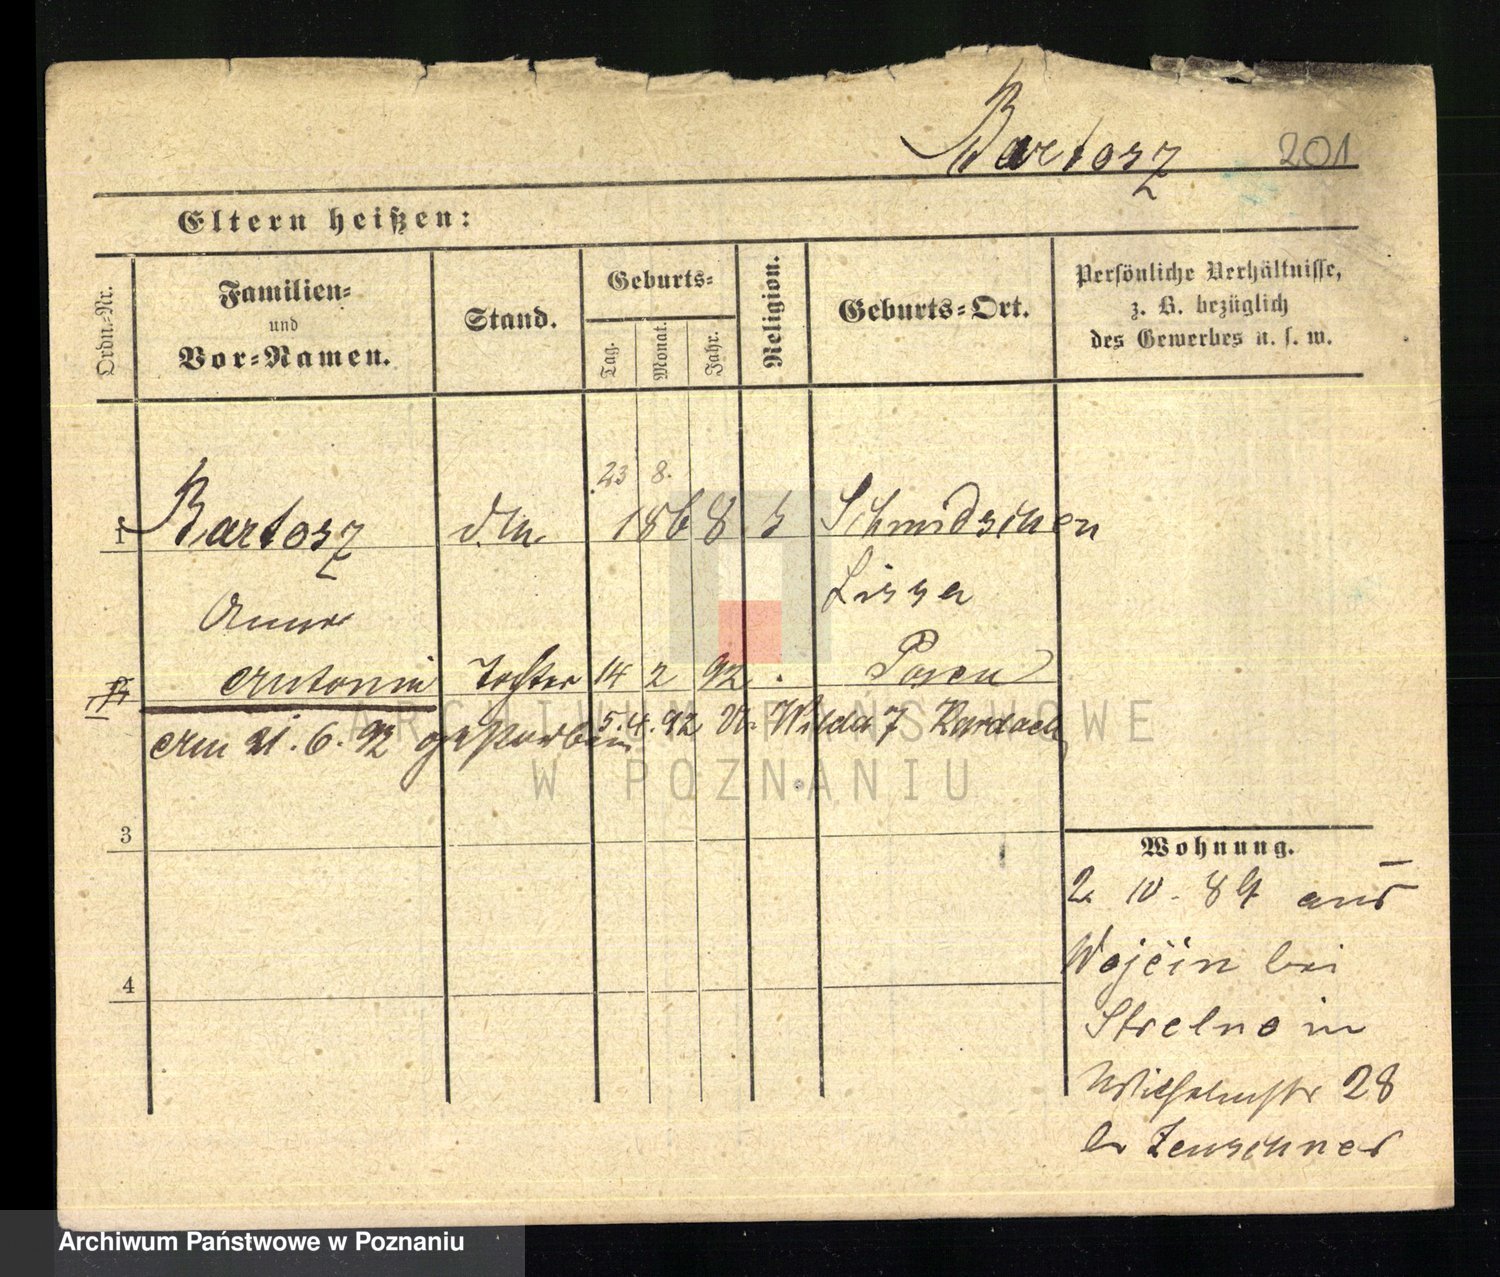 Bartosz 201
Eltern heißen:
Ordn.-Nr.
Familien-
und
Vor-Namen.
Stand.
Geburts-
Tag.
Monat.
Jahr.
Religion.
Geburts-Ort.
Persönliche Verhältnisse,
z. B. bezüglich
des Gewerbes u. s. w.
23 8.
1 Bartosz 1868
Anna Lissa
Antonie Tochter 14 2 92 Posen
am 21. 6. 92 gestorben
5. 4. 92 Wilda 7
3
4
Wohnung.
2 10. 89 aus
Wojcin bei
Strelno in
Wilhelmstr 28
b Zeuschner
ARCHIWUM PAŃSTWOWE
W POZNANIU
Archiwum Państwowe w Poznaniu